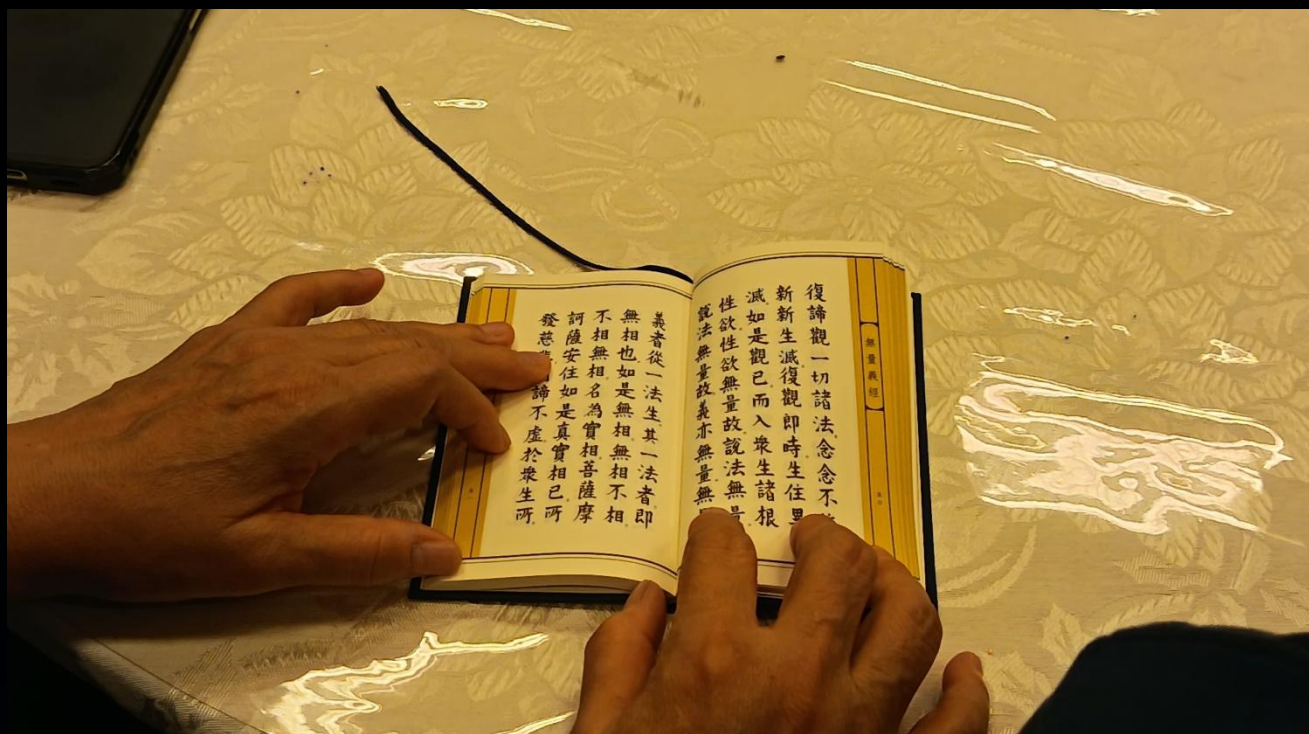 無量義經
復諦觀一切諸法念念不
新新生滅復觀即時生住
滅如是觀已而入衆生諸根
性欲性欲無量故說法無量
說法無量故義亦無量無
義者從一法生其一法者即
無相也如是無相無相不相
不相無相名為實相菩薩摩
訶薩安住如是真實相已所
發慈諦不虛於衆生所